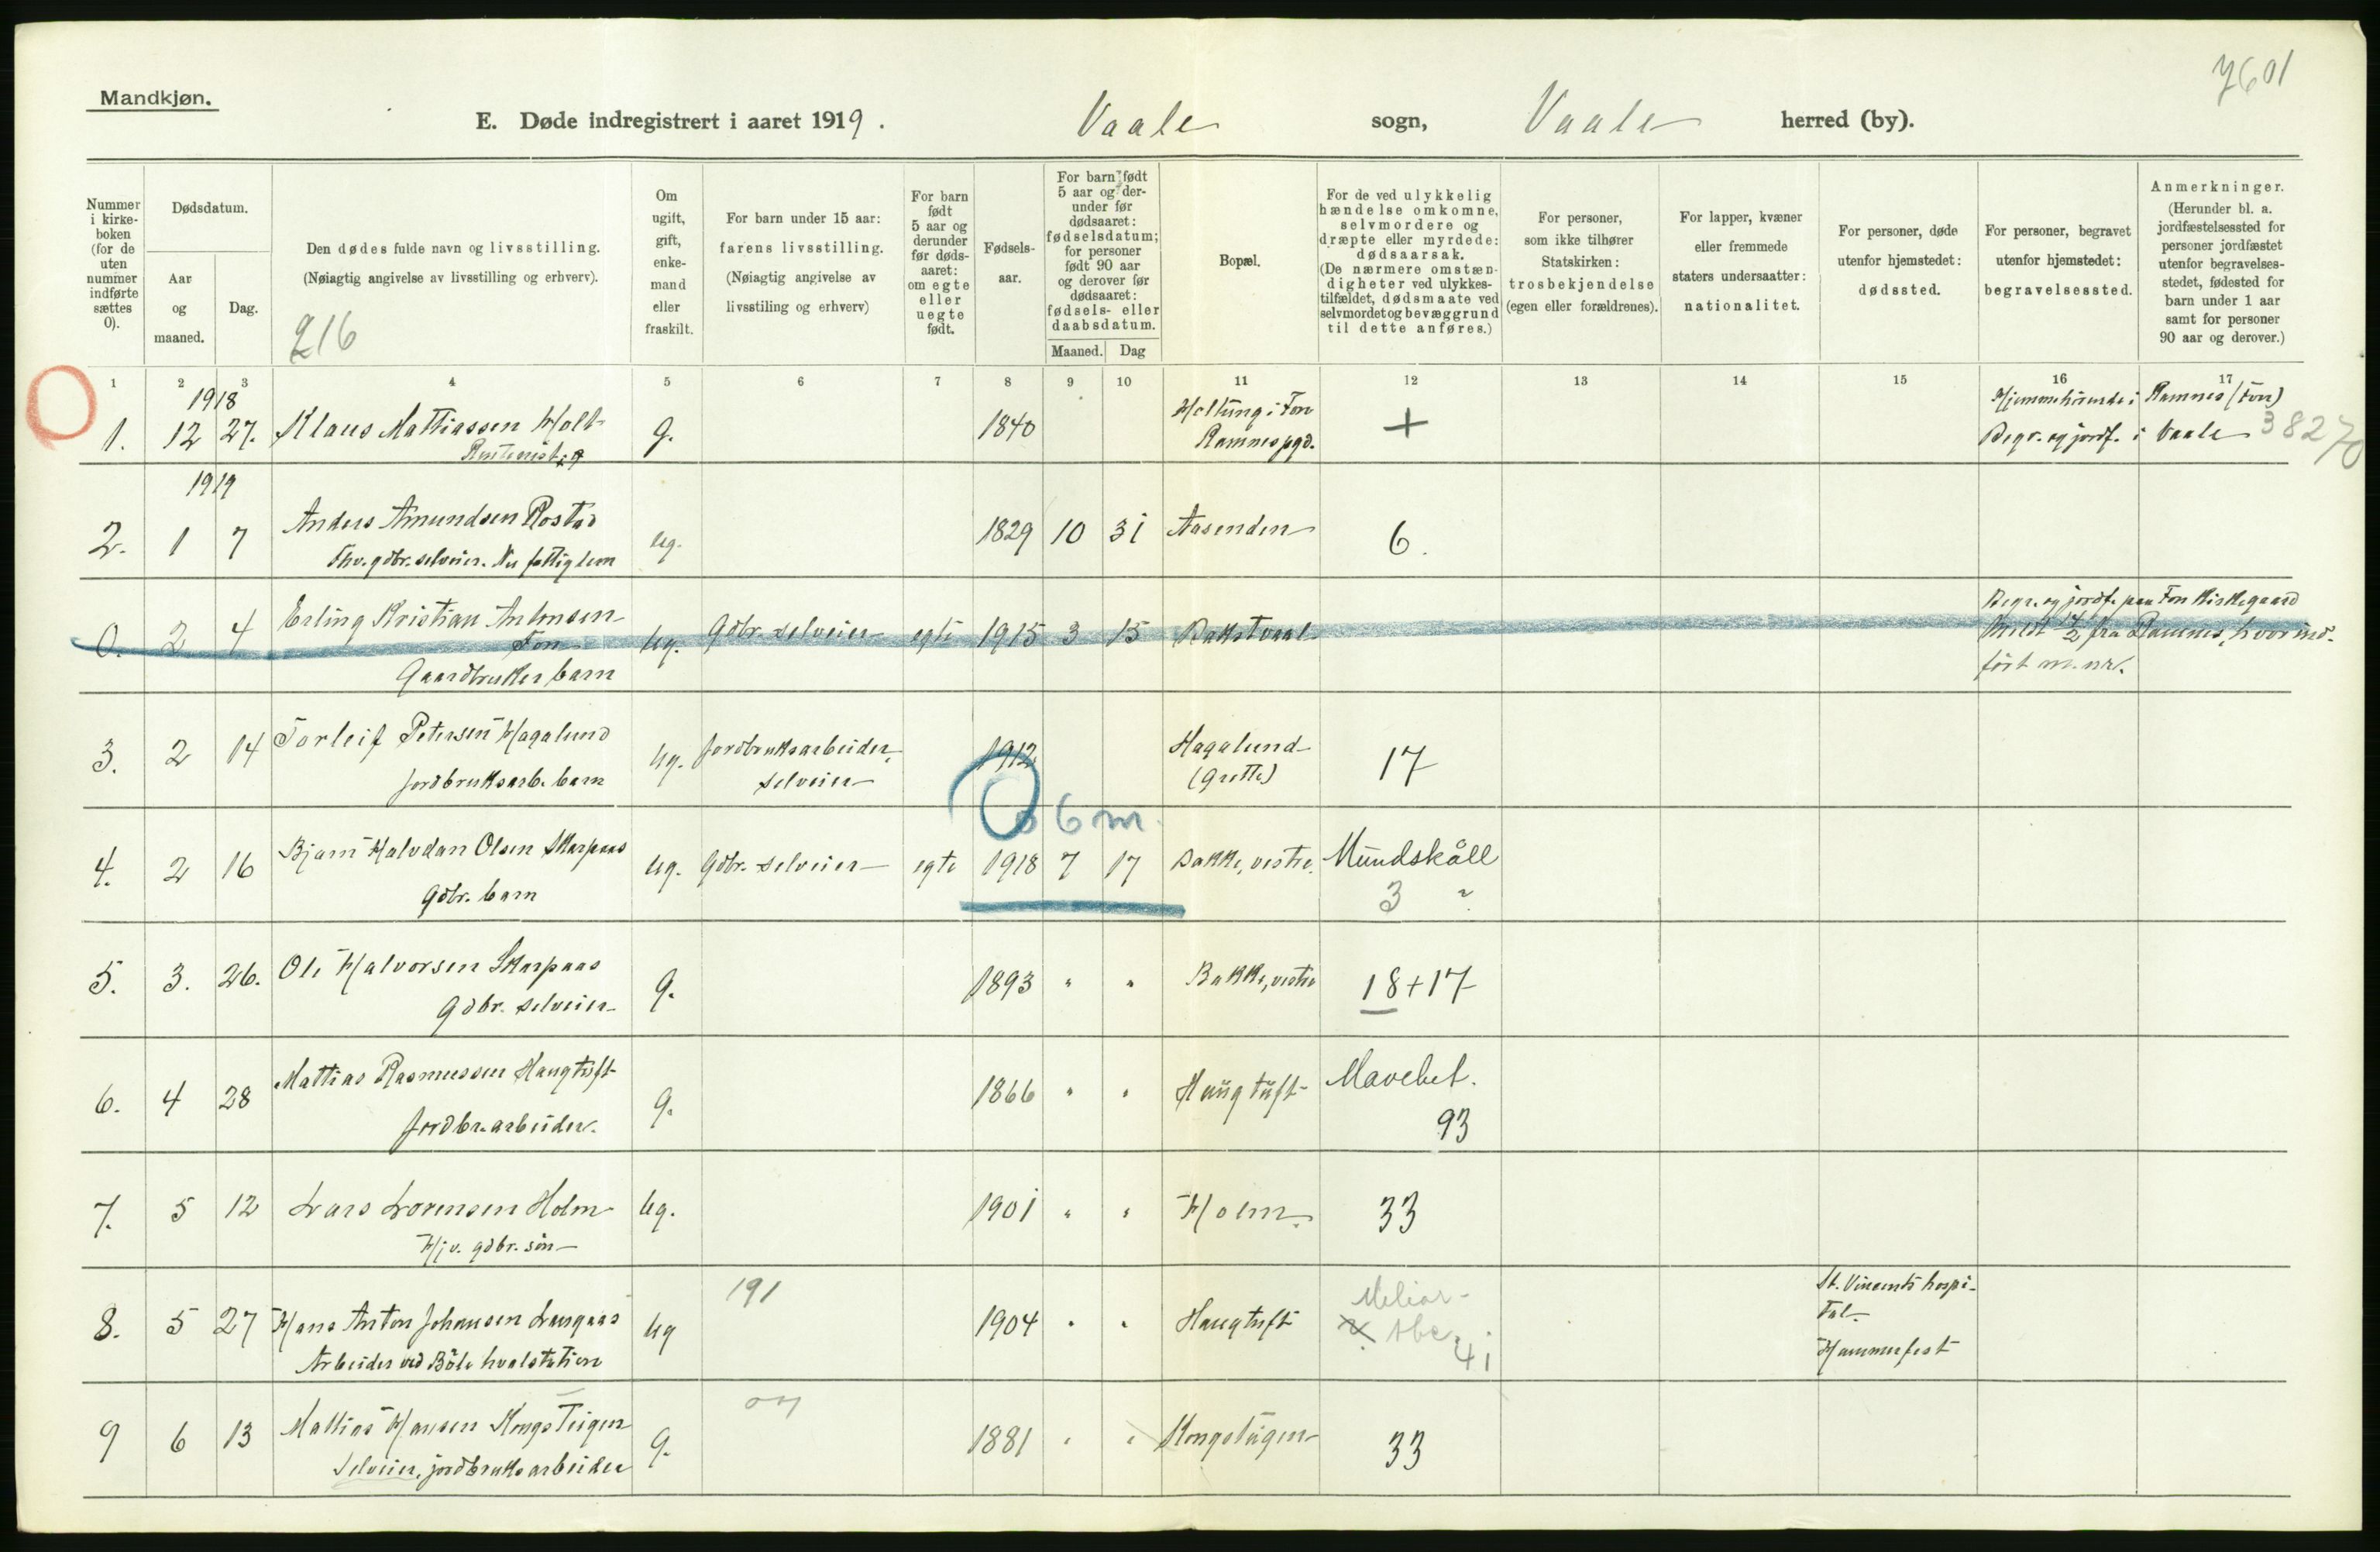 7601
Mandkjøn.
E. Døde indregistrert i aaret 1919. Vaale sogn, Vaale herred (by).
Nummer i kirke-boken (for de uten nummer indførte sættes 0).
Dødsdatum.
Aar og maaned.
Dag.
Den dødes fulde navn og livsstilling.
(Nøiagtig angivelse av livsstilling og erhverv).
216
Om ugift, gift, enke-mand eller fraskilt.
For barn under 15 aar:
farens livsstilling.
(Nøiagtig angivelse av
livsstiling og erhverv)
For barn født 5 aar og derunder før døds-aaret: om egte eller uegte født.
Fødsels-aar.
For barn født 5 aar og der-under før dødsaaret: fødselsdatum; for personer født 90 aar og derover før dødsaaret: fødsels- eller daabsdatum.
Maaned. Dag
Bopæl.
For de ved ulykkelig hændelse omkomne, selvmordere og dræpte eller myrdede: dødsaarsak. (De nærmere omstæn-digheter ved ulykkes-tilfældet, dødsmaate ved selvmordet og bevæggrund til dette anføres.)
For personer, som ikke tilhører Statskirken: trosbekjendelse (egen eller forældrenes).
For lapper, kvæner eller fremmede staters undersaatter: nationalitet.
For personer, døde utenfor hjemstedet: dødssted.
For personer, begravet utenfor hjemstedet: begravelsessted.
Anmerkninger. (Herunder bl. a. jordfæstelsessted for personer jordfæstet utenfor begravelses-stedet, fødested for barn under 1 aar samt for personer 90 aar og derover.)
1 2 3 4 5 6 7 8 9 10 11 12 13 14 15 16 17
1918
1. 12 27. Klaus Mattiassen Holt g. 1840 Holtung i Fon +
Rentenist Ramnes pgd.
Hjemmehörende i Ramnes (Fon)
Begr. og jordf. i Vaale 38270
1919
2. 1 7 Anders Amundsen Rostad ug. 1829 10 31 Aasenden 6.
Fhv. gdbr. selveier. Nu fattiglem
0. 2 4 Erling Kristian Antonsen Fon ug. Gdbr. selveier egte 1915 3 15
Gaardbruker barn
Begr. og jordf. paa Fon kirkegaard
Meldt 14/2 fra Ramnes, hvor ind-
fört m. nr.
3. 2 14 Torleif Petersen Hagalund ug. Jordbruksarbeider, selveier 1912 Hagalund (Grette) 17
Jordbruksarb. barn
6 m.
4. 2 16 Bjarne Halvdan Olsen Skarpaas ug. Gdbr. selveier egte 1918 7 17 Bakke, vestre. Mundskåll
Gdbr. barn 3 ?
5. 3. 26. Ole Halvorsen Skarpaas g. 1893 " " Bakke, vestre 18+17
Gdbr. selveier
6. 4 28 Mattias Rasmussen Haugtuft g. 1866 " " Haugtuft Mavebet.
Jordbr. arbeider. 93
7. 5 12 Lars Lorensen Holm ug. 1901 " " Holm 33
Hjv. gdbr. sön
8. 5 27 Hans Anton Johansen Langaas ug 191 1904 " " Haugtuft 41
Arbeider ved Böle hvalstation
St. Vincents hospi-
tal
Hammerfest
9 6 13 Mattias Hansen Kongsteigen g. 07 1881 " " Kongsteigen 33
Selveier, jordbruksarbeider